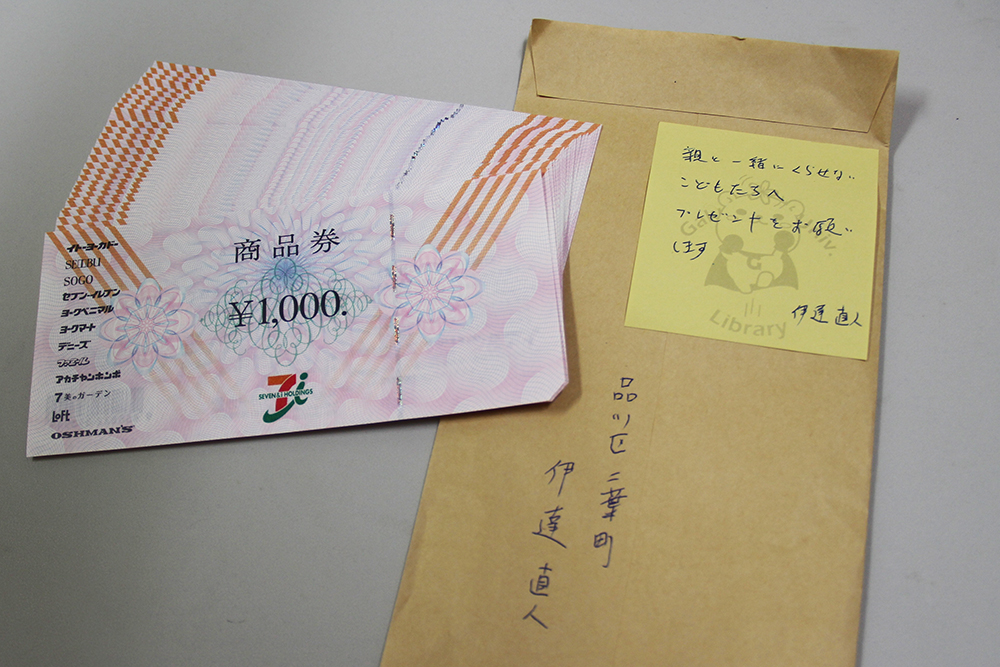 商品券
¥1,000.
イトーヨーカドー
SEIBU
SOGO
セブン-イレブン
ヨークベニマル
ヨークマート
デニーズ
ファミール
アカチャンホンポ
7美のガーデン
Loft
OSHMAN'S
SEVEN&I HOLDINGS
親と一緒にくらせない
こどもたちへ
プレゼントをお願い
します
伊達直人
Library
品川区二葉町
伊達直人